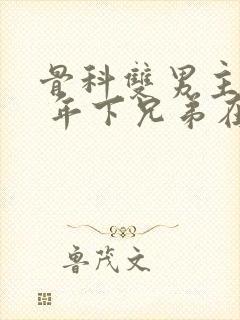 骨科雙男主
年下兄弟在
魯茂文